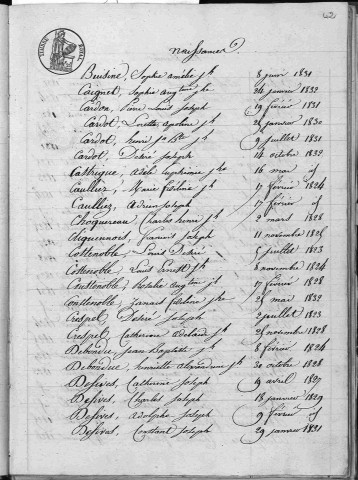 42
TIMBRE ROYAL
naissances
Beudin, Sophie amélie jh 8 juin 1831
Caignet, Sophie augtine jhe 24 janvier 1832
Cardon, Pierre Louis Joseph 19 février 1831
Cardot, Lisette, apoline jh 21 janvier 1830
Cardot, henri jn Bte jh 9 juillet 1831
Cardot, Désiré Joseph 14 octobre 1832
Castrique, adèle Euphémie jhe 16 mai
Caulliez, Marie fidéline jh 17 février 1824
Caulliez, adrien Joseph 17 février
Choquereau Charles henri jh 2 mars 1828
Cliquennois, francois Joseph 11 novembre
Cottenoble Louis Désiré 5 juillet 1823
Cottenoble, Louis Ernest jh 8 novembre 1824
Coustenoble, Rosalie augtine jh 17 février 1828
Constenoble, jh 25 mai 1832
Crespel Désiré Joseph 2 juillet 1823
Crespel, Catherine adelaïde jh 25 novembre 1828
Debondue, Jean Baptiste jh 8 février 1824
Debondue, henriette alexandrine jh 30 octobre 1828
Desfives, Catherine Joseph 19 avril 1827
Desfives, Charles Joseph 18 janvier 1829
Desfives, adolphe Joseph 9 février
Desfives, Constant Joseph 29 janvier 1831